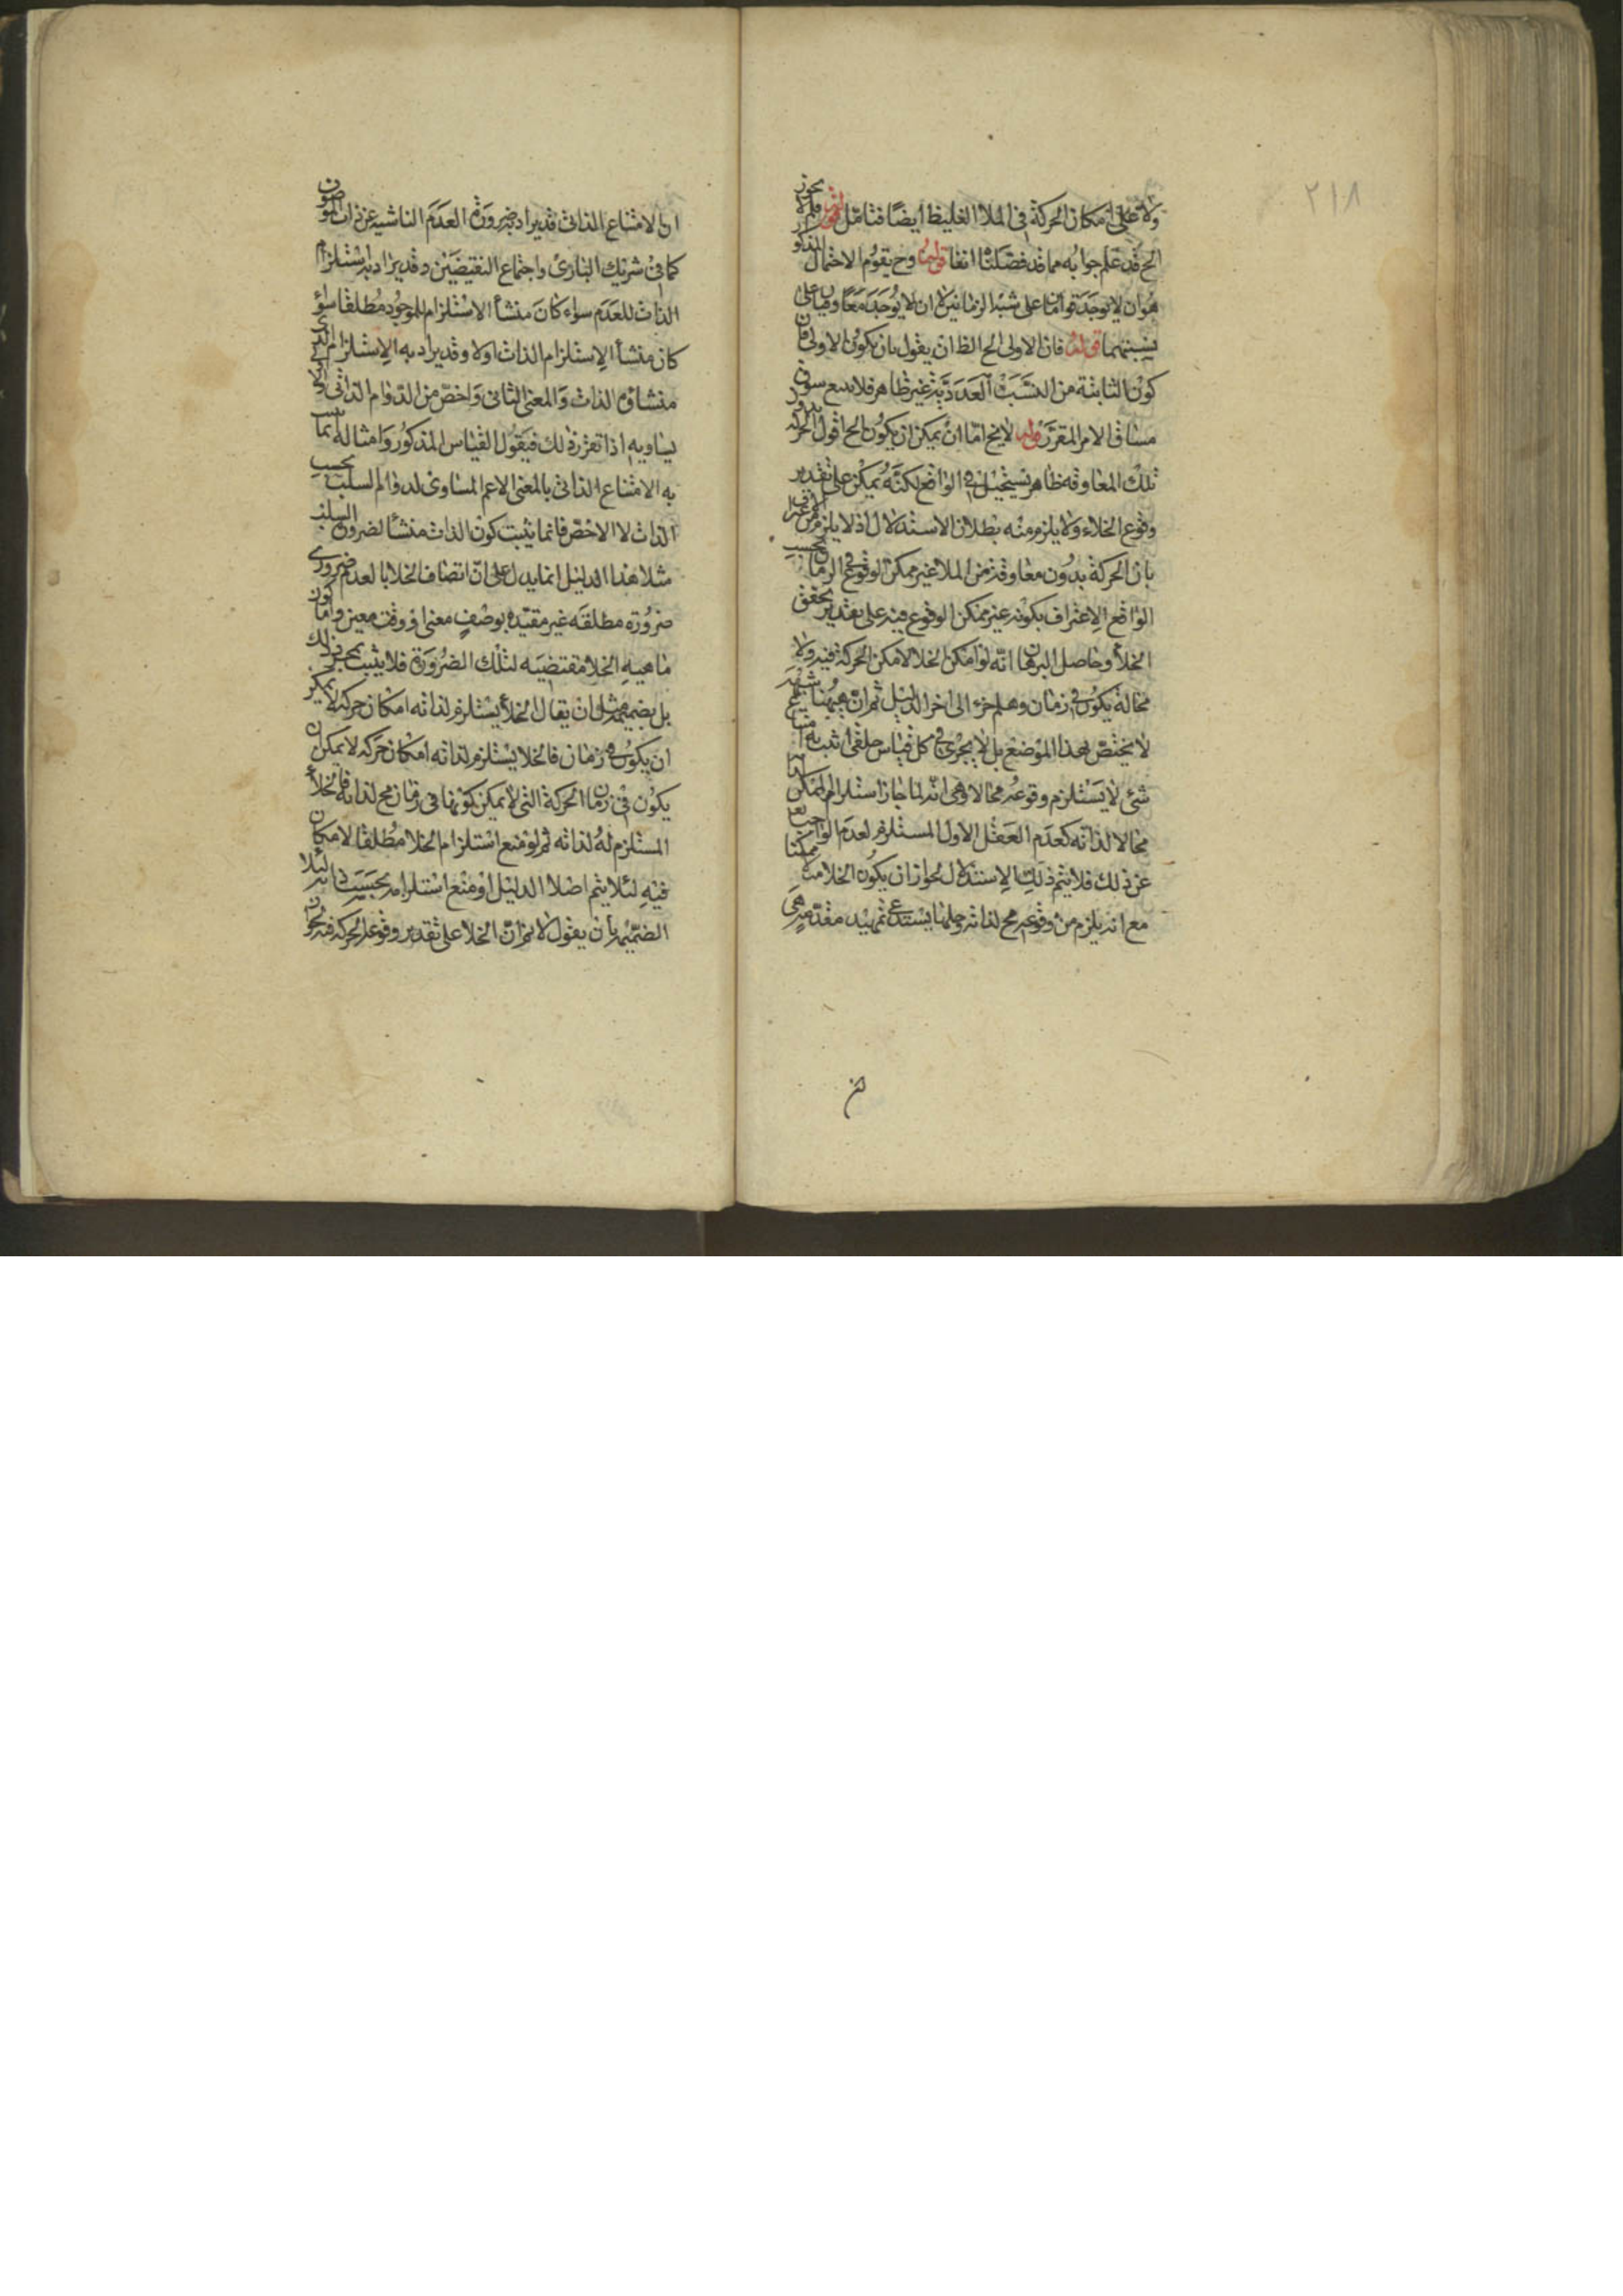 ٢١٨
ولا على امكان الحركة فى الملاء الغليظ ايضا فتامل قوله فلم لا يجوز
الخ قد علم جوابه مما قد فصلناه انفا قوله وح يقوم الاحتمال المذكور
هو ان لا يوجد قوامان على شبه الزمانين لا ان لا يوجد معا
بنسبتهما قوله فان الاولى الخ الظ ان يقول بان يكون الاولى فان
كون الثابتة من النسب العددية غير ظاهر فلا يسع سوق
مساق الامر المقرر قوله لا يخ اما ان يمكن ان يكون الخ اقول الحركة بدون
تلك المعاوقة ظاهر تستحيل فى الواقع لكنه يمكن على تقدير
وقوع الخلاء ولا يلزم منه بطلان الاستدلال اذ لا يلزم من الاعتراف
بان الحركة بدون معاوقة من الملاء غير ممكن الوقوع فى الزمان بحسب
الواقع الاعتراف بكونه غير ممكن الوقوع فيه على تقدير تحقق
الخلأ وحاصل البرهان انه لو امكن الخلا لامكن الحركة فيه ولا
محالة يكون فى زمان وهلم جرا الى اخر الدليل ثم ان ههنا شبهة
لا يختص بهذا الموضع بل يجرى فى كل قياس خلفى اثبت به امتناع
شئ لا يستلزم وقوعه محالا وهى انه لما جاز استلزام الممكن
محالا لذاته كعدم العقل الاول المستلزم لعدم الواجب تعا
عن ذلك فلا يتم ذلك الاستدلال لجواز ان يكون الخلا ممكنا
مع انه يلزم من وقوعه مح لذاته وحلها يستدعى تمهيد مقدمة هى
ان الامتناع الذاتى قد يراد به ضرورة العدم الناشية عن ذات الموصوف
كما فى شريك البارى واجتماع النقيضين وقد يراد به استلزام
الذات للعدم سواء كان منشأ الاستلزام للوجود مطلقا سواء
كان منشأ الاستلزام الذات اولا وقد يراد به الاستلزام الذى
منشاؤه الذات والمعنى الثانى واخص من الدوام الذاتى
يساويه اذا تقرر ذلك فيقول القياس المذكور وامثاله انما يثبت
به الامتناع الذاتى بالمعنى الاعم المساوى لدوام السلب بحسب
الذات لا الاخص فانما يثبت كون الذات منشأ لضرورة السلب
مثلا هذا الدليل انما يدل على ان اتصاف الخلا بالعدم ضرورى
ضرورة مطلقة غير مقيدة بوصف معنى او وقت معين واما كون
ماهية الخلا مقتضية لتلك الضرورة فلا يثبت بمجرد ذلك
بل بضميمة مثل ان يقال الخلأ يستلزم لذاته امكان حركة لا يمكن
ان يكون فى زمان فالخلا يستلزم لذاته امكان حركة لا يمكن ان
يكون فى زمان الحركة التى لا يمكن كونها فى زمان مح لذاته فالخلأ
المستلزم له لذاته ثم لو منع استلزام الخلا مطلقا لامكان
فيه لئلا يتم اصلا الدليل او منع استلزامه بحسب ذاته لئلا
الضميمة بان يقول لا نم ان الخلا على تقدير وقوعه الحركة فيه
لان